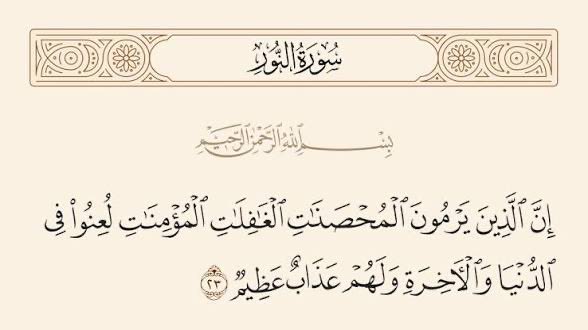 سُورَةُ النُّورِ
بِسْمِ ٱللَّهِ ٱلرَّحْمَٰنِ ٱلرَّحِيمِ
إِنَّ ٱلَّذِينَ يَرْمُونَ ٱلْمُحْصَنَٰتِ ٱلْغَٰفِلَٰتِ ٱلْمُؤْمِنَٰتِ لُعِنُوا۟ فِى
ٱلدُّنْيَا وَٱلْءَاخِرَةِ وَلَهُمْ عَذَابٌ عَظِيمٌ ٢٣